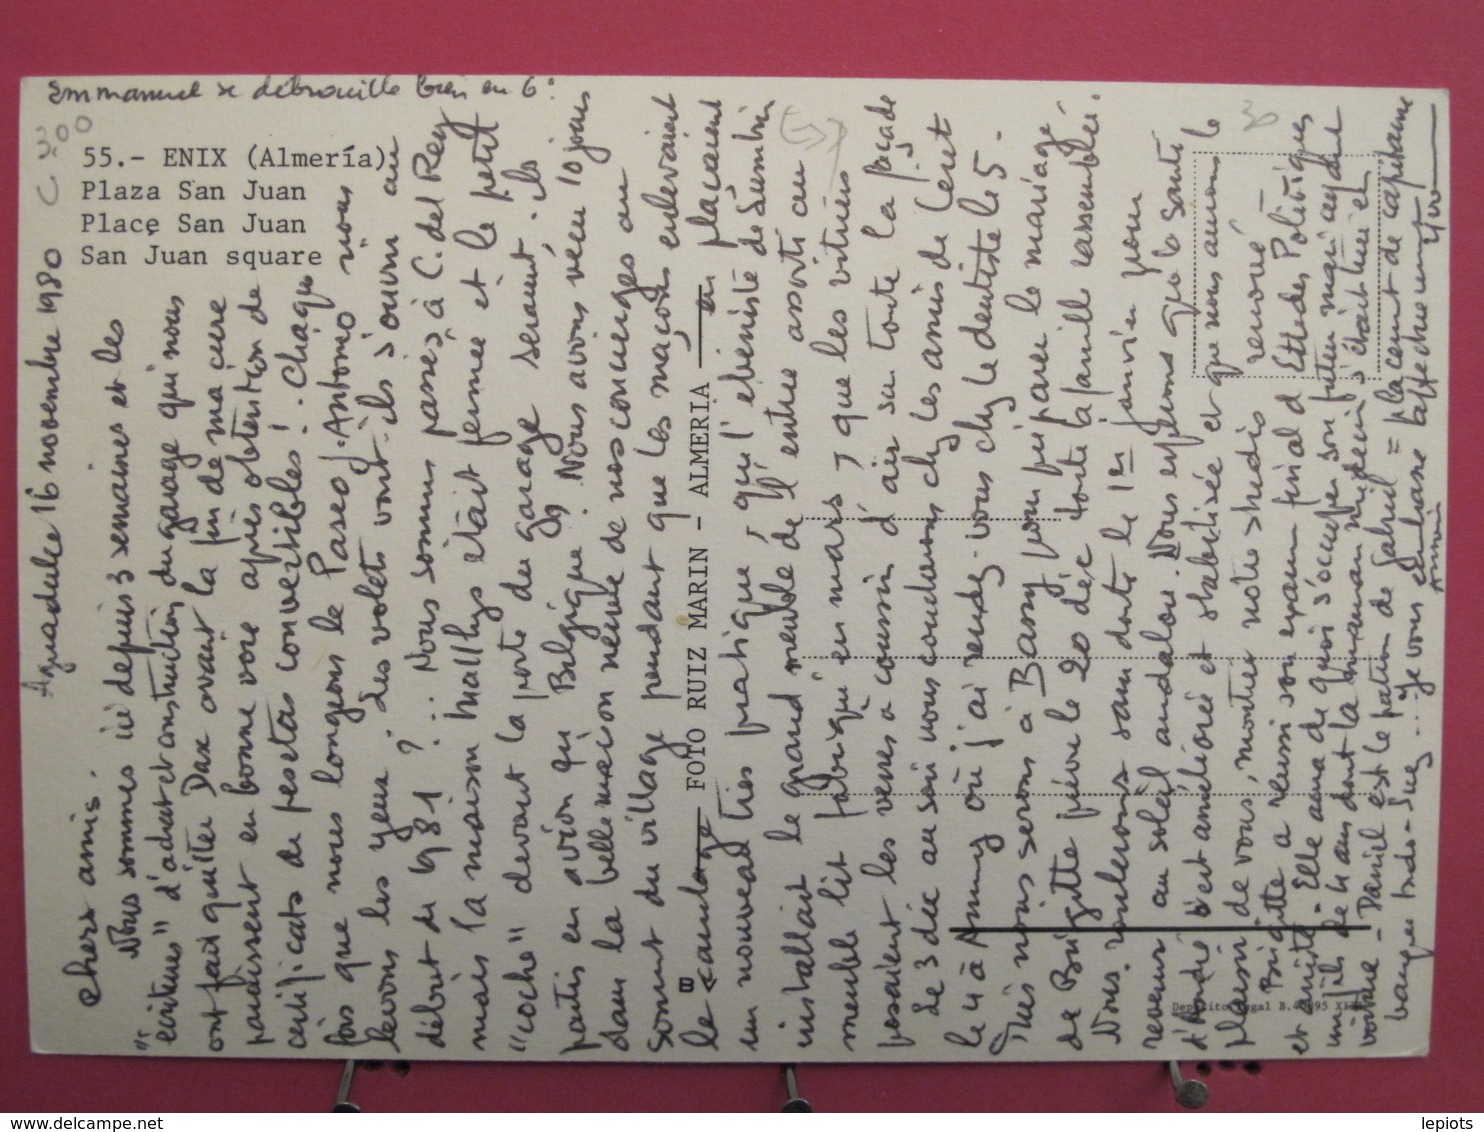 Emmanuel se débrouille bien en 6e.
C 3.00
55.- ENIX (Almería)
Plaza San Juan
Place San Juan
San Juan square
Aguadulce 16 novembre 1980
Chers amis.
Nous sommes ici depuis 3 semaines et les
"écritures" d'achat et construction du garage qui nous
ont fait quitter Dax avant la fin de ma cure
paraissent en bonne voie après obtention de
certificats de pesetas convertibles ! Chaque
fois que nous longeons le Paseo J. Antonio nous
levons les yeux. des volets vont-ils s'ouvrir au
début de 1981 ? .. Nous sommes passés à C. del Rey
mais la maison était fermée et le petit
"coche" devant la porte du garage seraient-ils
partis en avion en Belgique ? Nous avons vécu 10 jours
dans la belle maison neuve de nos concierges au
sommet du village pendant que les maçons enlevaient
le en plaçaient
B
FOTO RUIZ MARIN - ALMERIA
un nouveau très pratique, que l'ébéniste de
installait le grand meuble de l'entrée assorti au
meuble lit fabriqué en mars, que les vitriers
posaient les verres à coussin d'air sur toute la façade
Le 3 déc au soir nous couchons chez les amis de Ceret
le 4 à où j'ai rendez-vous chez le dentiste le 5.
Puis nous serons à pour préparer le mariage
de Brigitte prévu le 20 déc toute la famille rassemblée.
Nous roulerons sans doute le 1er janvier pour
revenir au soleil andalou. Nous espérons que la santé
d'André s'est améliorée et stabilisée et que nous aurons le
plaisir de vous montrer notre studio rénové
Brigitte a réussi son examen final d'Etudes Politiques
et Elle aura de quoi s'occuper son futur mari ayant
un fils de 4 ans dont la maman s'était tuée en
voiture - Daniel est le patron de Gabriel = placement de capitaux
banque Indo-Suez ... Je vous embrasse
30
Deposito Legal B.